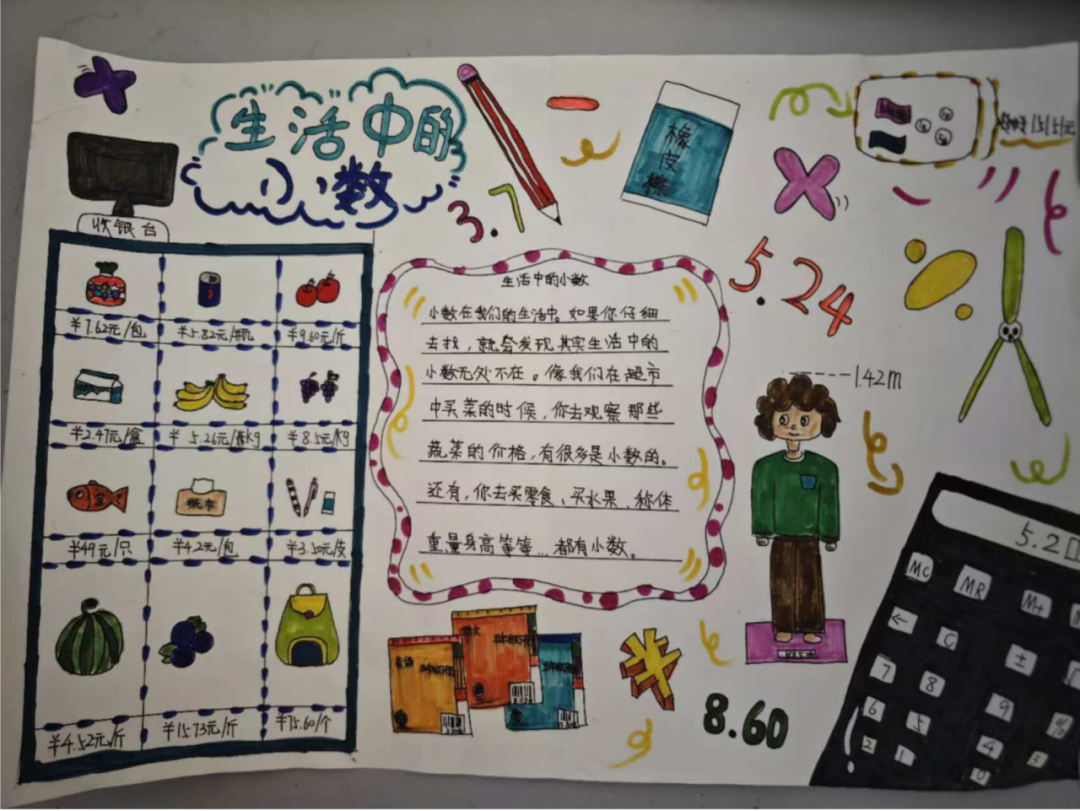 生活中的
小数
收银台
橡
皮
擦
3.7
5.24
1.42m
¥7.62元/包
¥5.82元/瓶
¥9.60元/斤
¥2.47元/盒
¥8.5元/kg
¥49元/只
¥4.2元/包
¥4.52元/斤
¥15.73元/斤
¥75.60/个
生活中的小数
小数在我们的生活中。如果你仔细
去找，就会发现其实生活中的
小数无处不在。像我们在超市
中买菜的时候，你去观察那些
蔬菜的价格，有很多是小数的。
还有，你去买零食、买水果、称体
重量身高等等…都有小数。
语文
8.60
5.20
MC
MR
M+
M
←
C
±
7
8
9
%
6
5
4
2
1
0